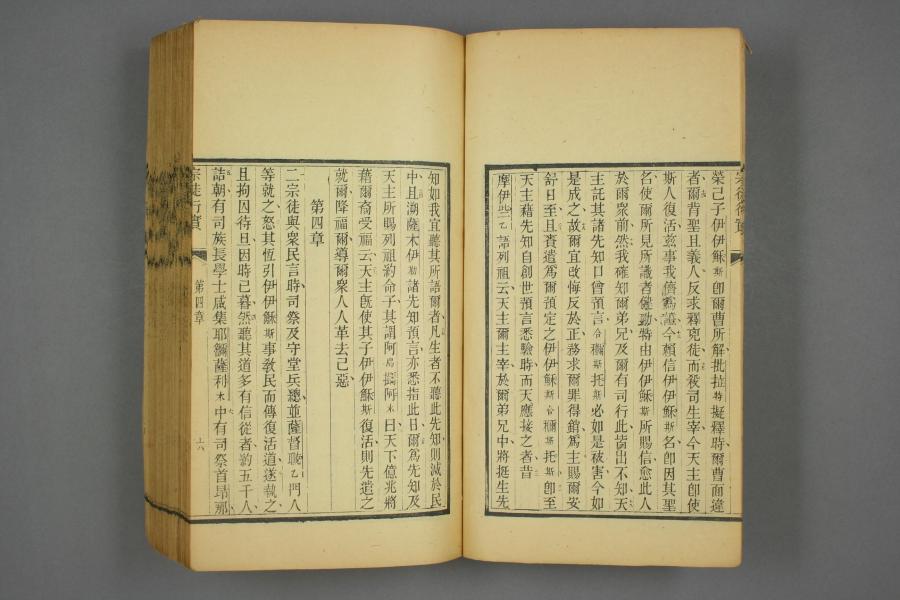 榮己子伊伊穌斯卽爾曹所解批拉特擬釋時爾曹面違
者爾背聖且義人反求釋兇徒而後司生宰今天主卽使
斯人復活玆事我儕爲證今賴信伊伊穌斯名卽因其聖
名使爾所見所識者健動特由伊伊穌斯所賜信愈此人
於爾衆前然我確知爾弟兄及爾有司行此皆出不知天
主託其諸先知口曾預言合穪斯托斯必如是被害今如
是成之故爾宜改悔反於正務求爾罪得銷爲主賜爾安
舒日至且賚遣爲爾預定之伊伊穌斯合穪斯托斯卽至
天主藉先知自創世預言悉驗時而天應接之者昔
摩伊些乙語列祖云天主爾主宰於爾弟兄中將挺生先
知如我宜聽其所語爾者凡生者不聽此先知則滅於民
中且溯薩木伊勒諸先知預言亦悉指此日爾爲先知及
天主所賜列祖約命子其謂阿烏擱阿木曰天下億兆將
藉爾裔受福云天主旣使其子伊伊穌斯復活則先遣之
就爾降福爾導爾衆人人革去己惡
第四章
二宗徒與衆民言時司祭及守堂兵總並薩督職乙門人
等就之怒其恆引伊伊穌斯事敎民而傳復活道遂執之
且拘囚待旦因時已暮然聽其道多有信從者約五千人
詰朝有司族長學士咸集耶鑈薩利木中有司祭首瑃那
宗徒行實
第四章